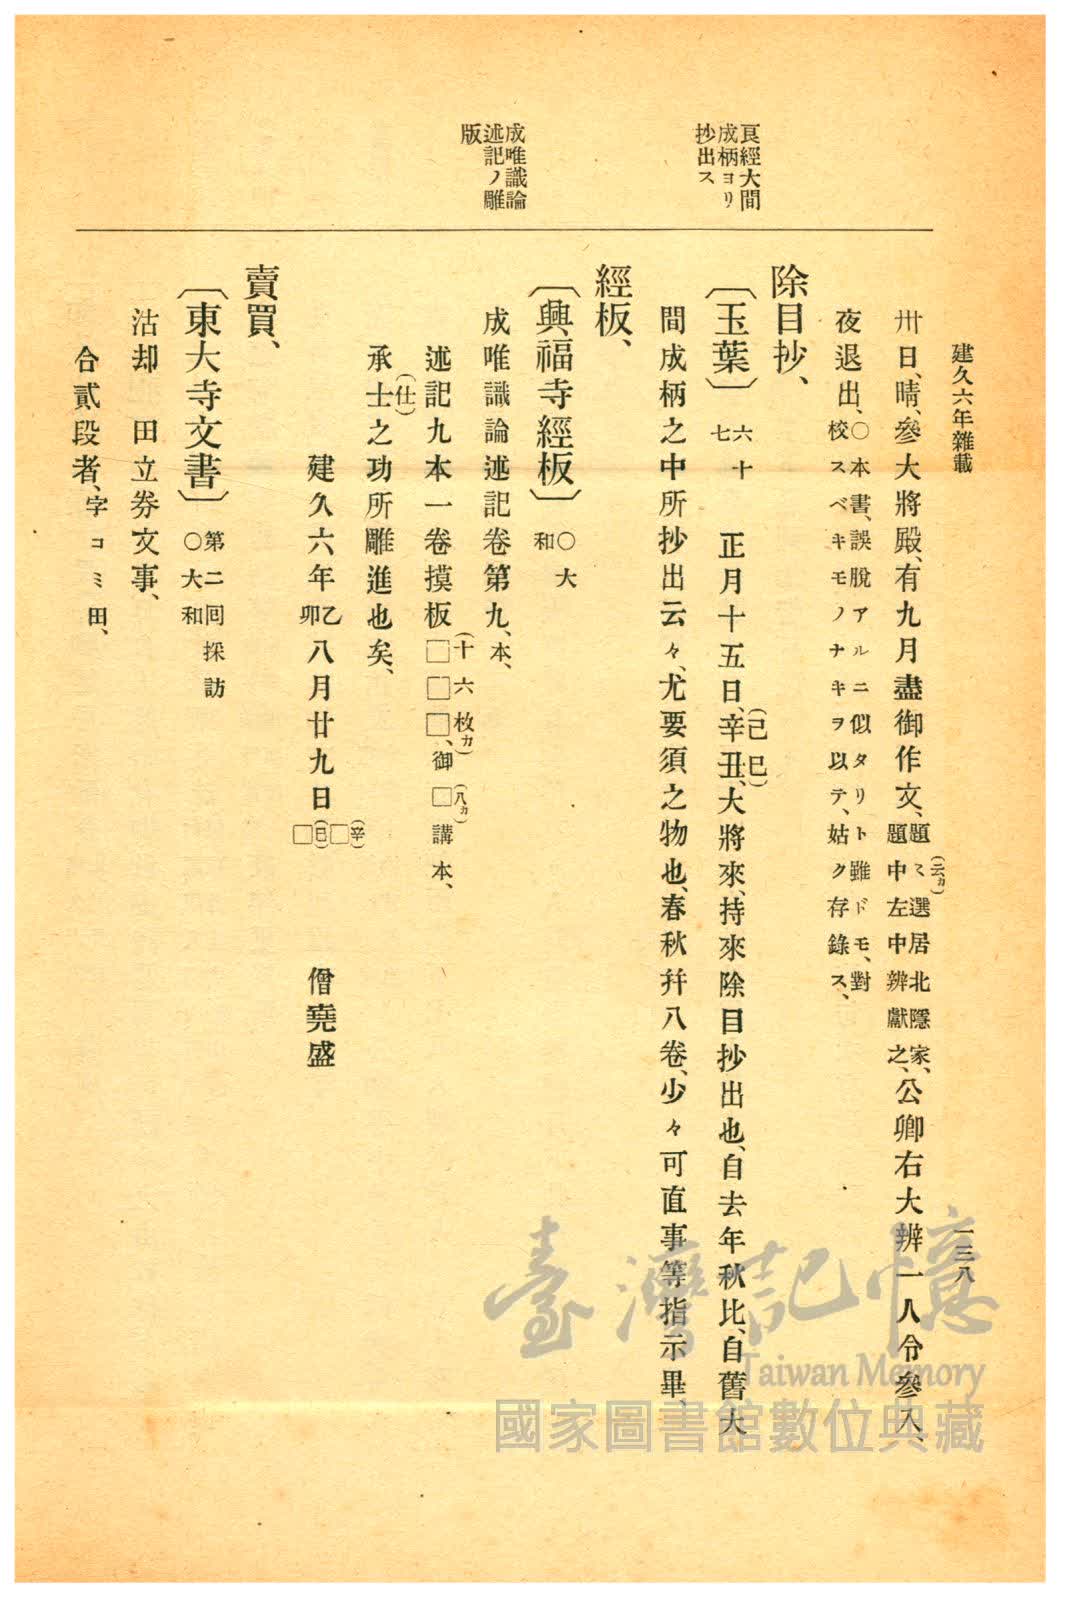 建久六年雜載
一三八
卅日、晴、參大將殿、有九月盡御作文、題云(云カ)選居北隱家、題中左中辨獻之、公卿右大辨一人令參入、
夜退出、○本書、誤脫アルニ似タリト雖ドモ、對校スベキモノナキヲ以テ、姑ク存錄ス、
除目抄、
〔玉葉〕六十七 正月十五日、辛丑、(己巳)大將來、持來除目抄出也、自去年秋比、自舊大
間成柄之中所抄出云々、尤要須之物也、春秋幷八卷、少々可直事等指示畢、
良經大間
成柄ヨリ
抄出ス
經板、
〔興福寺經板〕○大和
成唯識論述記卷第九、本、
述記九本一卷摸板□□□、(十六枚カ)御□(八カ)講本、
承士(仕)之功所雕進也矣、
建久六年乙卯八月廿九日□(辛)□(巳) 僧堯盛
成唯識論
述記ノ雕
版
賣買、
〔東大寺文書〕第二囘採訪○大和
沽却 田立券文事、
合貳段者、字コミ田、
臺灣記憶
Taiwan Memory
國家圖書館數位典藏